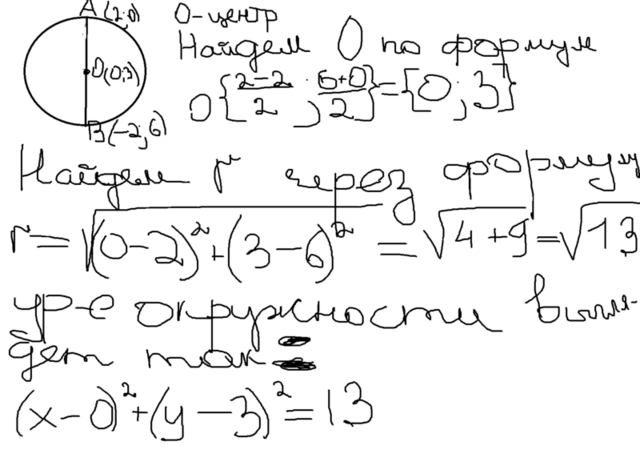 A (2;0)
О-центр
Найдем О по формул
O(0;3)
O{2-2/2 ; 6+0/2}={0;3}
B(-2;6)
Найдем r через формулу
r=√(0-2)²+(3-6)²=√4+9=√13
ур-е окружности выгля-
дет так
(x-0)²+(y-3)²=13